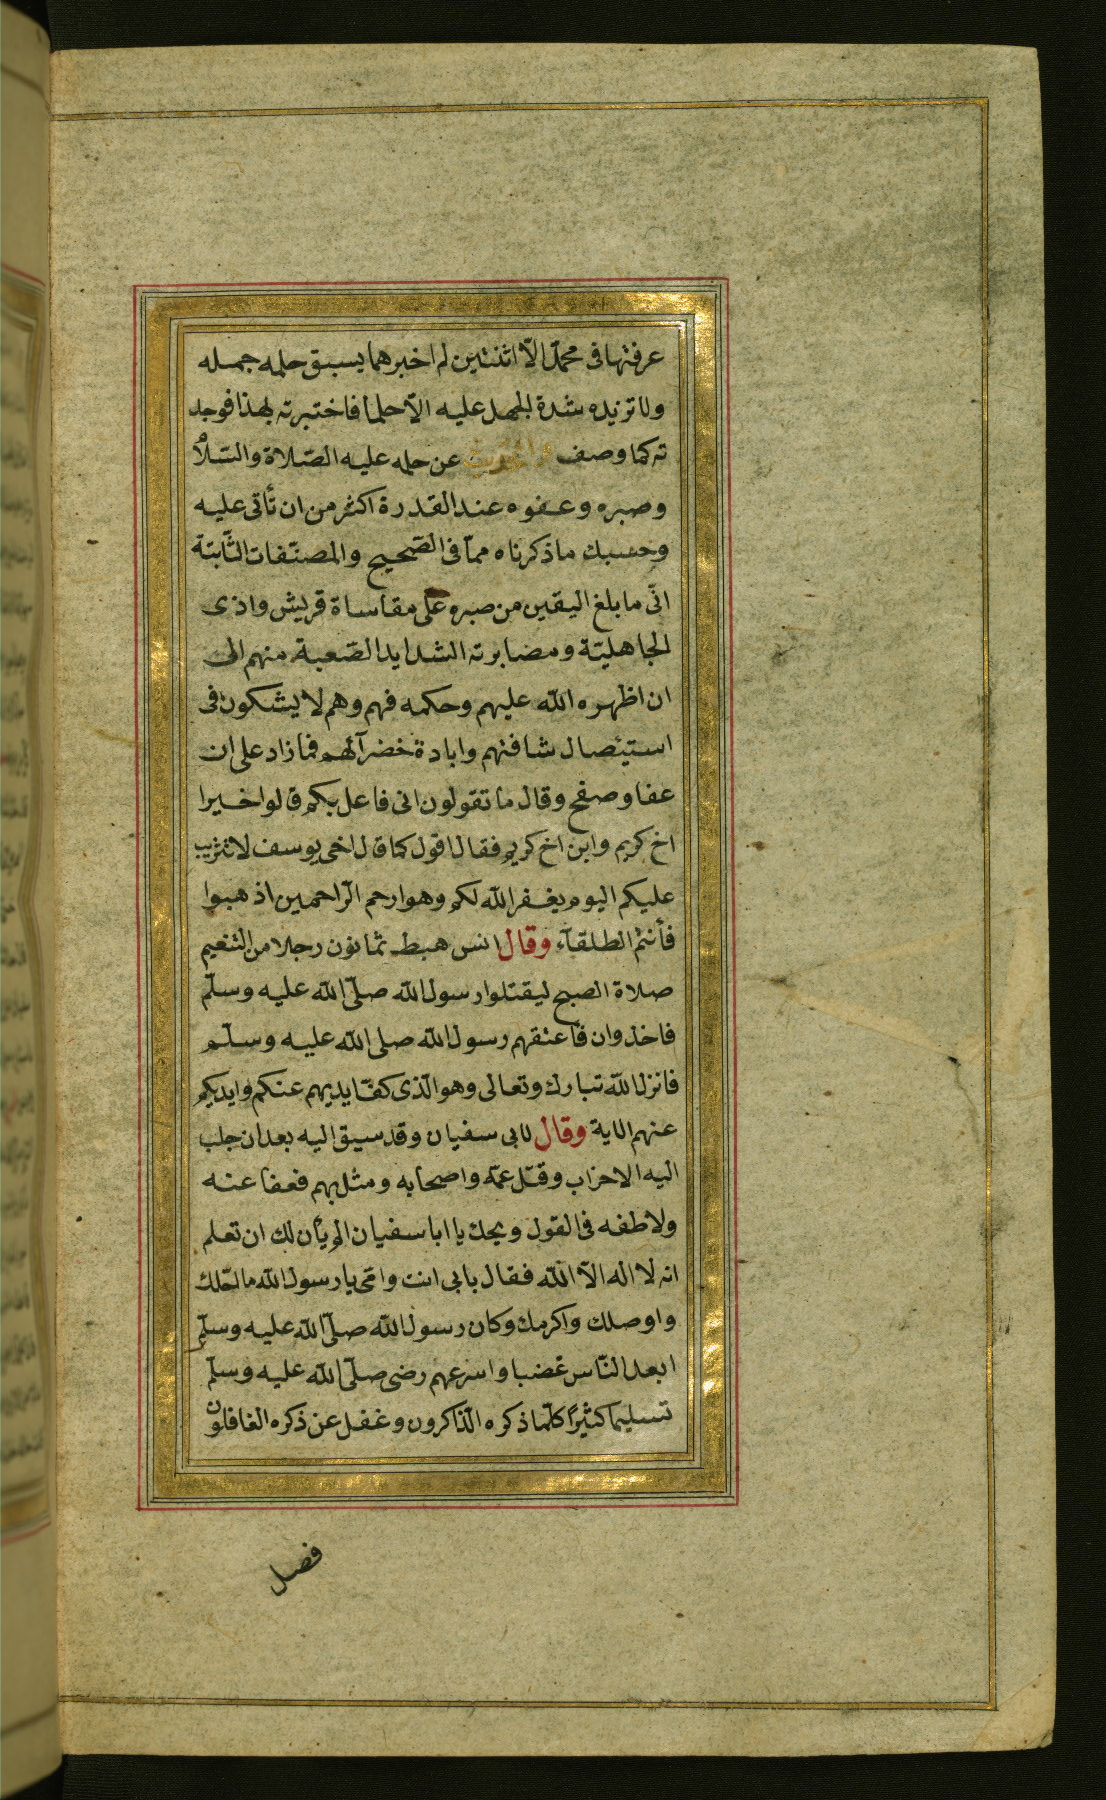 عرفتها فى محمد الّا اثنتين لم اخبرهما يسبق حلمه جهله
ولا تزيده شدة الجهل عليه الّا حلما فاختبرته بهذا فوجد
ته كما وصف والحديث عن حلمه عليه الصّلاة والسّلام
وصبره وعفوه عند القدرة اكثر من ان تأتى عليه
وحسبك ما ذكرناه ممّا فى الصّحيح والمصنّفات الثّابتة
الى ما بلغ اليقين من صبره على مقاساة قريش واذى
الجاهليّة ومصابرته الشدايد الصّعبة منهم الى
ان اظهره الله عليهم وحكمه فيهم وهم لا يشكون فى
استيصال شافتهم وابادة خضرآئهم فما زاد على ان
عفا وصفح وقال ما تقولون انى فاعل بكم قالوا خيرا
اخ كريم وابن اخ كريم فقال اقول كما قال اخى يوسف لا تثريب
عليكم اليوم يغفر الله لكم وهو ارحم الرّاحمين اذهبوا
فأنتم الطلقآء وقال انس هبط ثمانون رجلا من التنعيم
صلاة الصبح ليقتلوا رسول الله صلّى الله عليه وسلّم
فاخذوان فاعتقهم رسول الله صلى الله عليه وسلّم
فانزل الله تبارك وتعالى وهو الّذى كفّ ايديهم عنكم وايديكم
عنهم الاية وقال لابى سفيان وقد سيق اليه بعد ان جلب
اليه الاحزاب وقتل عمّه واصحابه ومثل بهم فعفا عنه
ولاطفه فى القول ويحك يا ابا سفيان الم يأن لك ان تعلم
انه لا اله الّا الله فقال بابى انت وامّى يا رسول الله ما احلمك
واوصلك واكرمك وكان رسول الله صلّى الله عليه وسلّم
ابعد النّاس غضبا واسرعهم رضى صلّى الله عليه وسلّم
تسليما كثيرًا كلّما ذكره الذّاكرون وغفل عن ذكره الغافلون
فصل